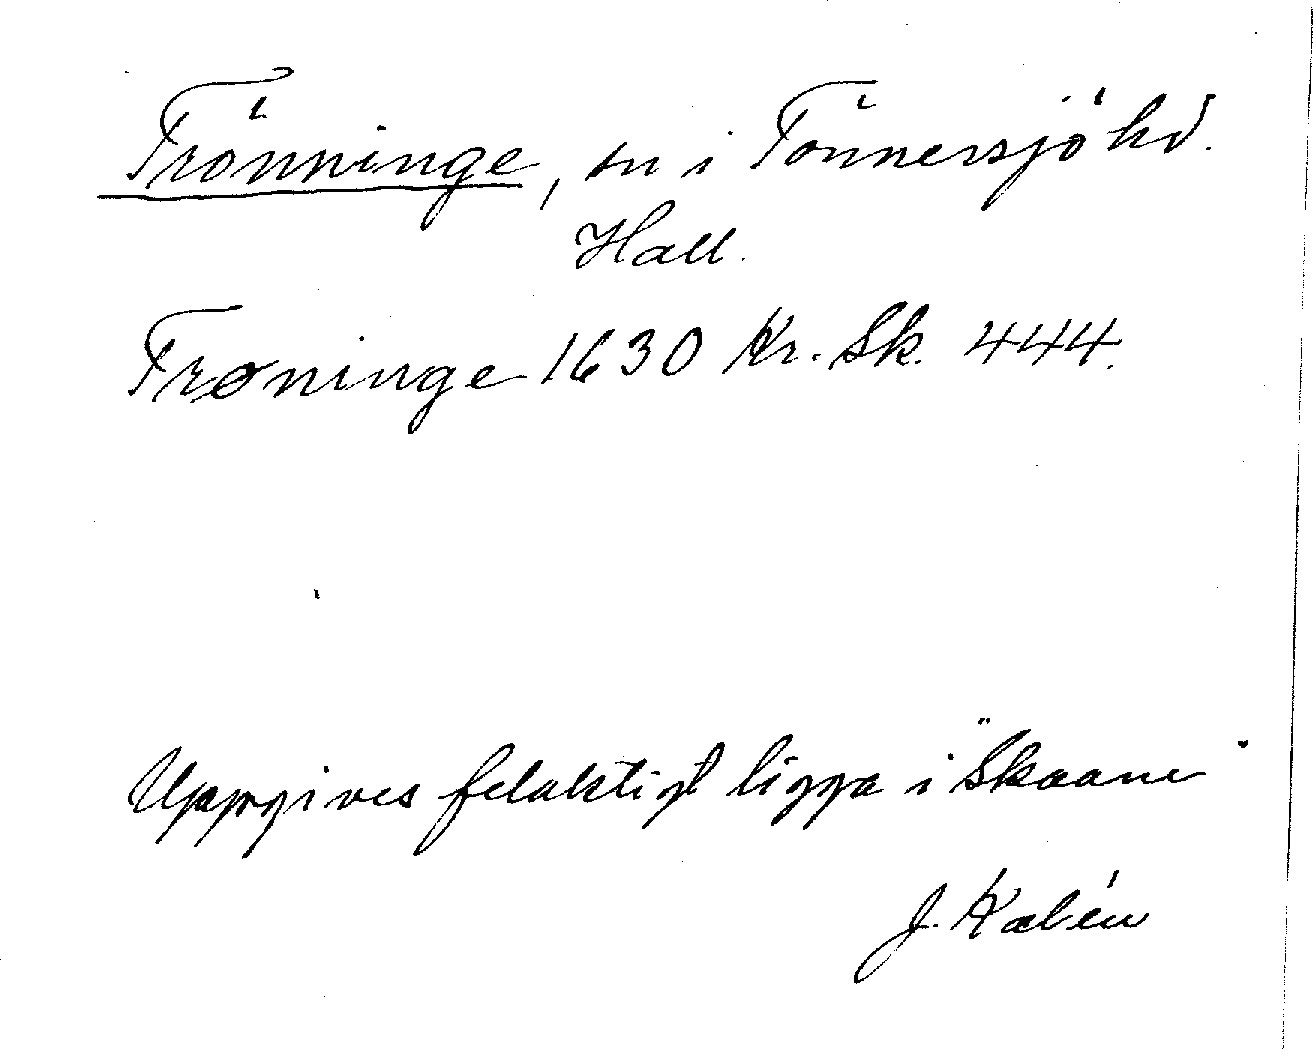 Trönninge, sn i Tönnersjö hd.
Hall.
Trøninge 1630 Kr. Sk. 444.
Uppgives felaktigt ligga i "Skaane"
J. Kalén